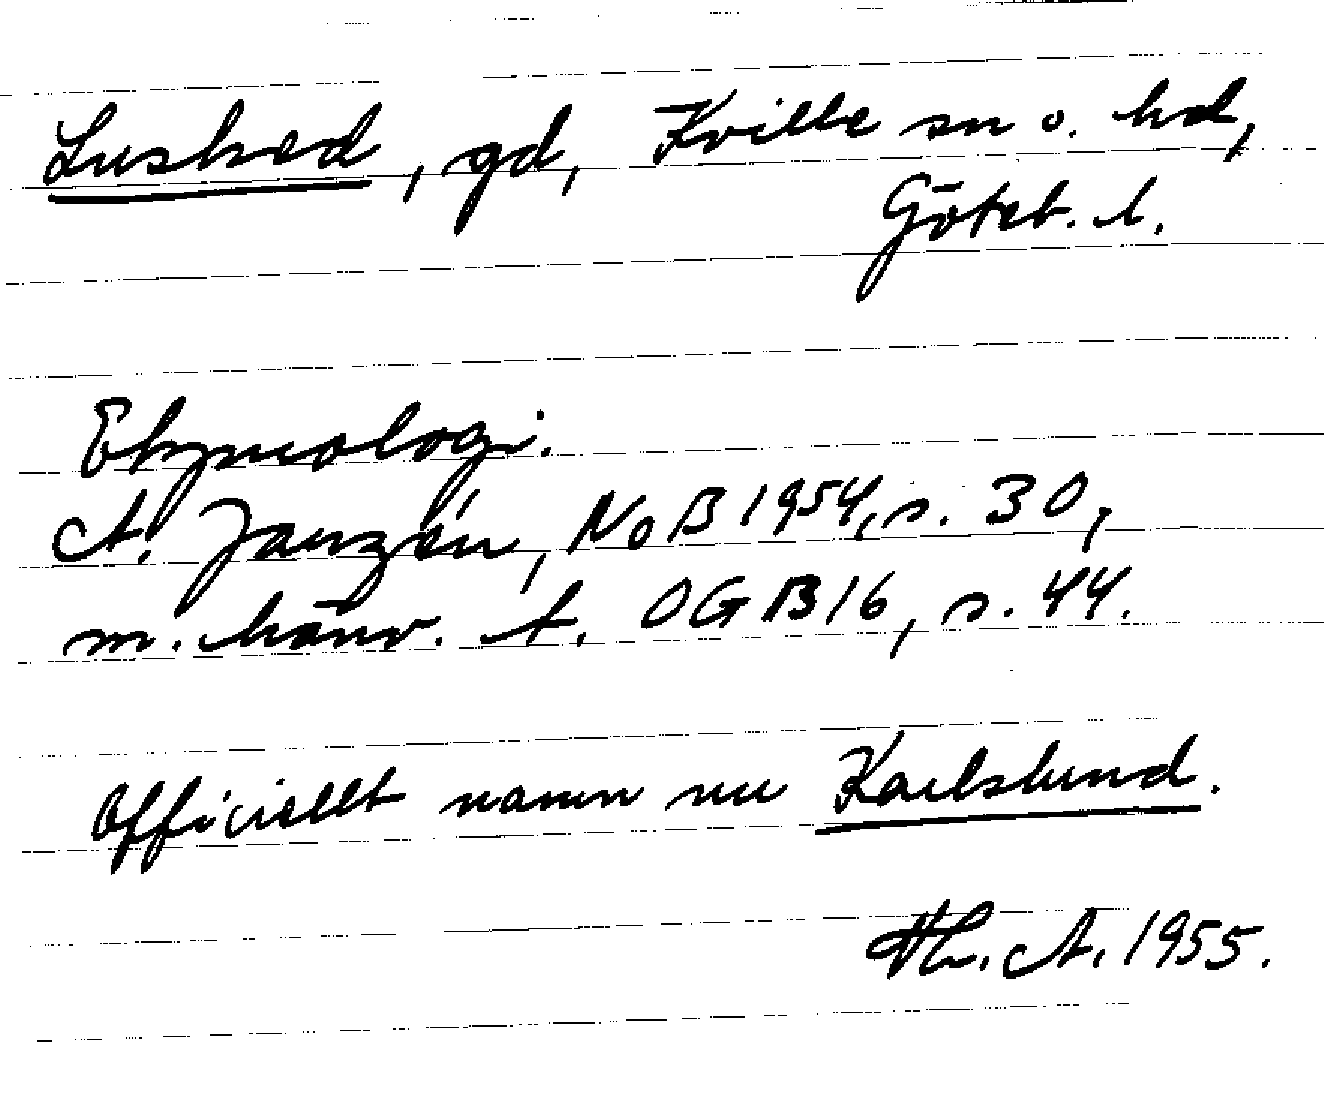 Lushed, gd, Kville sn o. hd,
Göteb. l.
Etymologi.
A. Janzén, NoB 1954, s. 30,
m. hänv. t. OGB 16, s. 44.
Officiellt namn nu Karlslund.
Th. A. 1955.